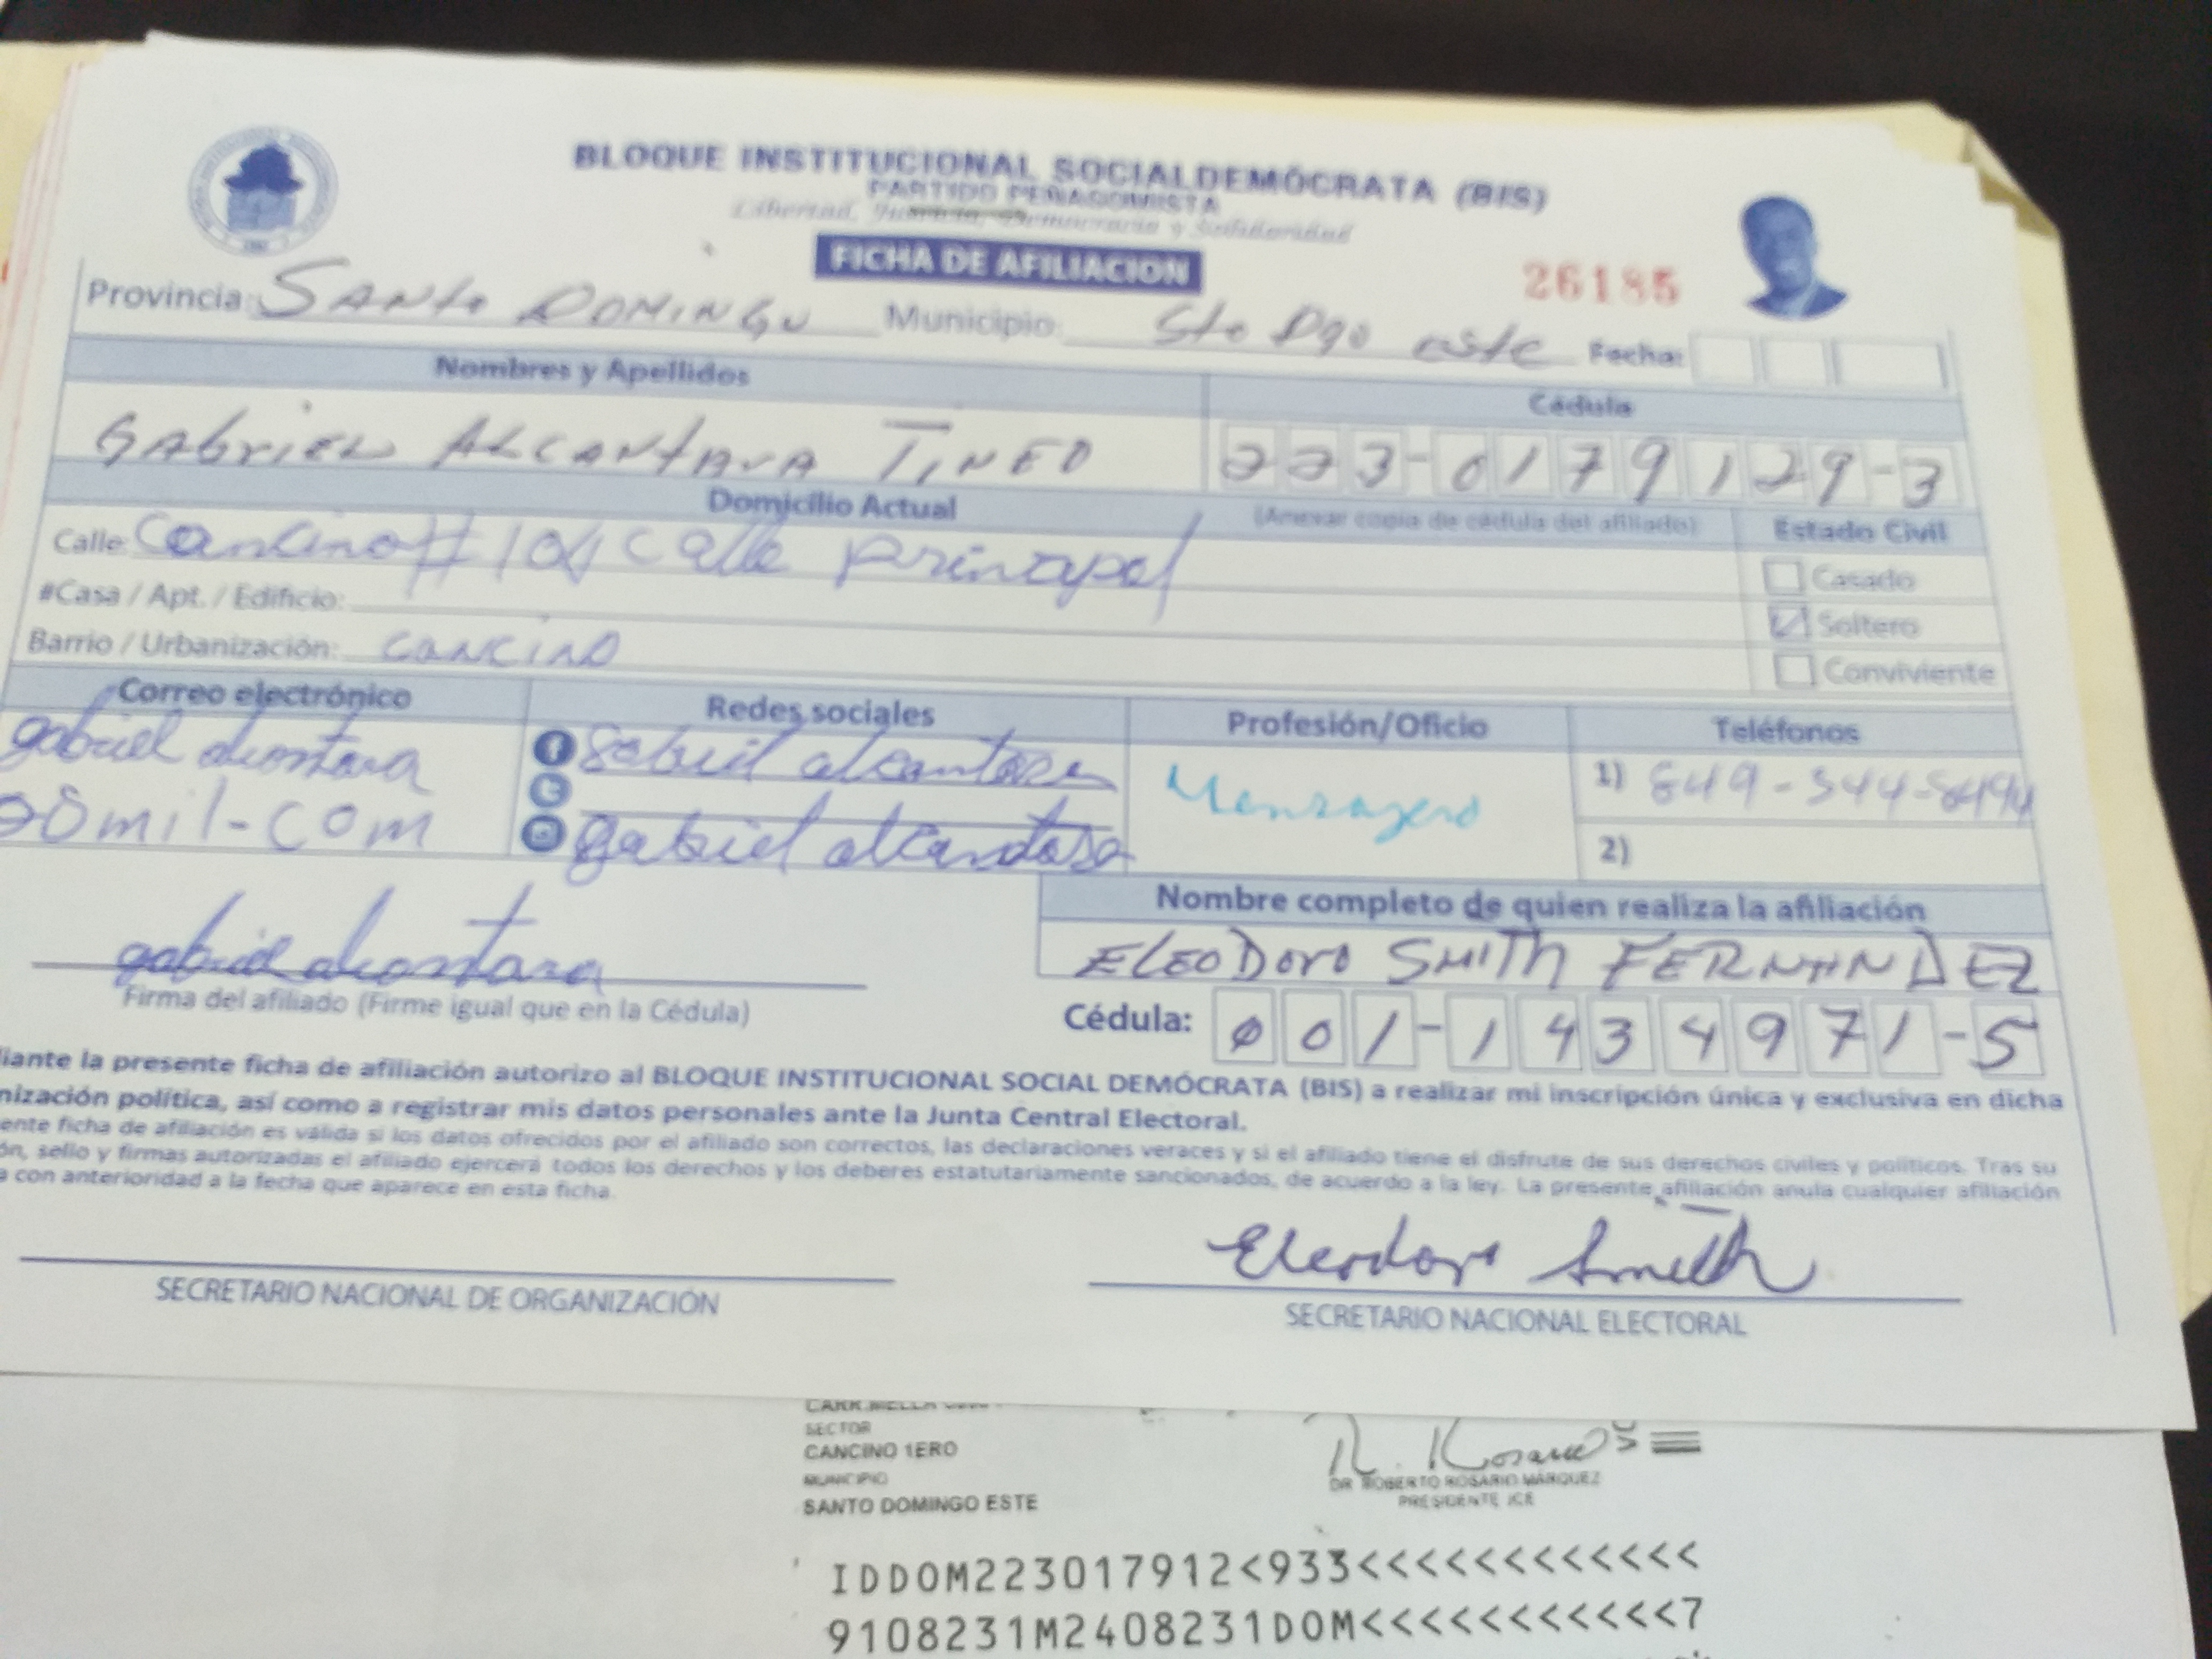 BLOQUE INSTITUCIONAL SOCIALDEMÓCRATA (BIS)
PARTIDO PEÑAGOMISTA
Libertad, Justicia, Democracia y Solidaridad
FICHA DE AFILIACION
26185
Provincia: SANto DOMINGO Municipio: Sto Dgo este Fecha:
Nombres y Apellidos Cédula
GAbriEL ALCANtArA TiNEO 223-0179129-3
Domicilio Actual (Anexar copia de cédula del afiliado) Estado Civil
Calle: Cancino # 104 Calle principal
Casado
#Casa / Apt. / Edificio:
Soltero
Barrio / Urbanización: CANCINO
Conviviente
Correo electrónico Redes sociales Profesión/Oficio Teléfonos
gabriel alcantara gabriel alcantara Mensajero 1) 849-344-8494
mil-com gabriel alcantara 2)
Nombre completo de quien realiza la afiliación
gabriel alcantara ELEODoro SMITh FERNANDEZ
Firma del afiliado (Firme igual que en la Cédula) Cédula: 001-1434971-5
liante la presente ficha de afiliación autorizo al BLOQUE INSTITUCIONAL SOCIAL DEMÓCRATA (BIS) a realizar mi inscripción única y exclusiva en dicha
nización política, así como a registrar mis datos personales ante la Junta Central Electoral.
ente ficha de afiliación es válida si los datos ofrecidos por el afiliado son correctos, las declaraciones veraces y si el afiliado tiene el disfrute de sus derechos civiles y políticos. Tras su
ón, sello y firmas autorizadas el afiliado ejercerá todos los derechos y los deberes estatutariamente sancionados, de acuerdo a la ley. La presente afiliación anula cualquier afiliación
a con anterioridad a la fecha que aparece en esta ficha.
Eleodoro Smith
SECRETARIO NACIONAL DE ORGANIZACIÓN SECRETARIO NACIONAL ELECTORAL
CARR.MELLA
SECTOR
CANCINO 1ERO
MUNICIPIO
SANTO DOMINGO ESTE
R. Rosario
DR. ROBERTO ROSARIO MÁRQUEZ
PRESIDENTE JCE
IDDOM223017912<933<<<<<<<<<<<<
9108231M2408231DOM<<<<<<<<<<<7